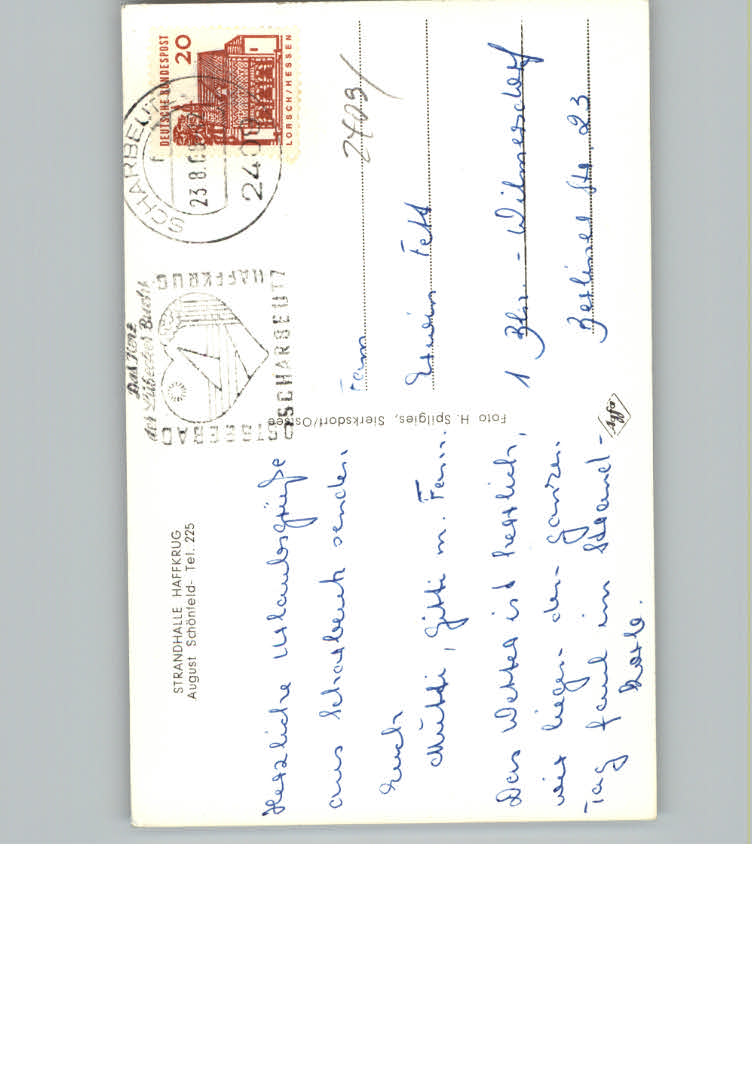 STRANDHALLE HAFFKRUG
August Schönfeld - Tel. 225
Herzliche Urlaubsgrüße
aus Scharbeutz senden
Euch
Mutti, Gitti m. Fam.
Das Wetter ist herrlich,
wir liegen den ganzen
Tag faul im Strand-
korb.
Foto H. Spilgies, Sierksdorf/Ostsee
agfa
Das Herz
der Lübecker Bucht
OSTSEEBAD
SCHARBEUTZ
HAFFKRUG
SCHARBEUTZ
23.8.
240
DEUTSCHE BUNDESPOST
20
LORSCH/HESSEN
2403/
Fam
Erwin Fett
1 Bln. - Wilmersdorf
Berliner Str. 23